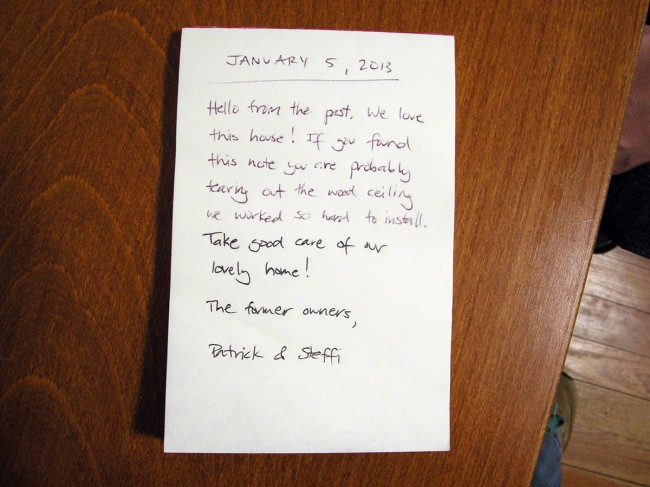 JANUARY 5, 2013
Hello from the past. We love
this house! If you found
this note you are probably
tearing out the wood ceiling
we worked so hard to install.
Take good care of our
lovely home!
The former owners,
Patrick & Steffi